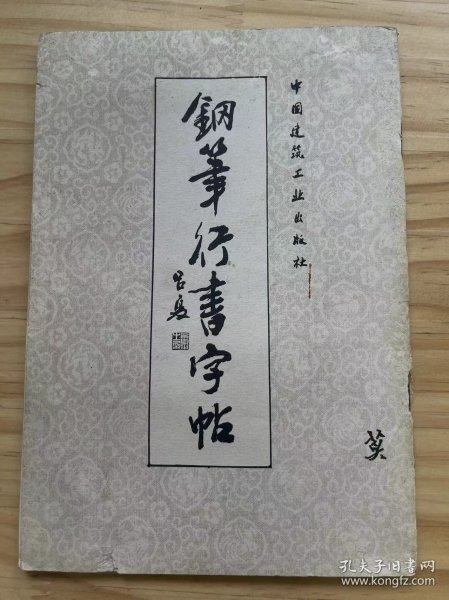 中国建筑工业出版社
鋼筆行書字帖
吕夏
英
孔夫子旧书网
www.kongfz.com